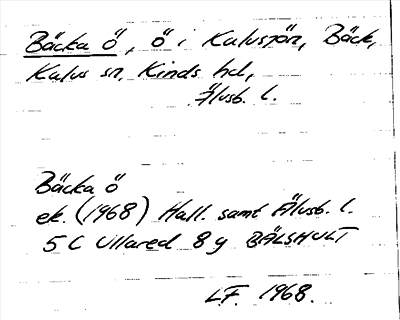 Bäcka ö, ö i Kalvsjön, Bäck,
Kalvs sn, Kinds hd,
Älvsb. l.
Bäcka ö
ek. (1968) Hall. samt Älvsb. l.
5 C Ullared 8 g BÄLSHULT
LF. 1968.